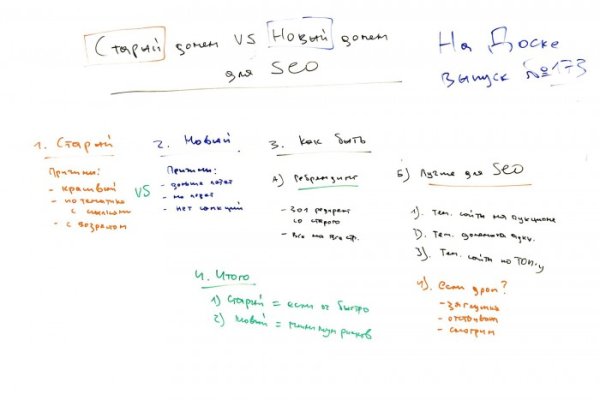 Старый домен VS Новый домен
для SEO
На Доске
выпуск №173
1. Старый
Причины:
- красивый
- по тематике
с ссылками
- с возрастом
VS
2. Новый
Причины:
- дольше
- нет санкций
3. Как быть
А) Ребрендинг
- 301 редирект
со старого
- Все на все стр.
Б) Лучше для SEO
1). Тем. сайты на аукционе
2). Тем. домены аукц.
3). Тем. сайты по ТОП-у
4). Если дроп?
- заглушка
- отстоять
- смотрим
4. Итого
1) Старый = если ок быстро
2) Новый = минимум рисков